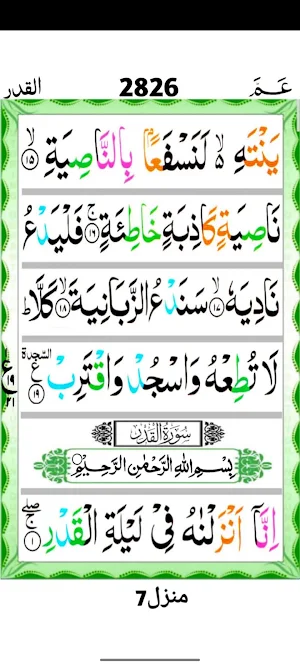 القدر 2826 عَمَّ
يَنْتَهِ ۙ لَنَسْفَعًۢا بِالنَّاصِيَةِ ۙ﴿۱۵﴾
نَاصِيَةٍ كَاذِبَةٍ خَاطِئَةٍ ۚ﴿۱۶﴾ فَلْيَدْعُ
نَادِيَهٗ ۙ﴿۱۷﴾ سَنَدْعُ الزَّبَانِيَةَ ۙ﴿۱۸﴾ كَلَّا ؕ
لَا تُطِعْهُ وَاسْجُدْ وَاقْتَرِبْ ﴿۱۹﴾ السجدة
ع ۱۹ ۲۱
سُوْرَةُ الْقَدْرِ
بِسْمِ اللّٰهِ الرَّحْمٰنِ الرَّحِيْمِ
اِنَّاۤ اَنْزَلْنٰهُ فِىْ لَيْلَةِ الْقَدْرِ ۖۚ﴿۱﴾
منزل7